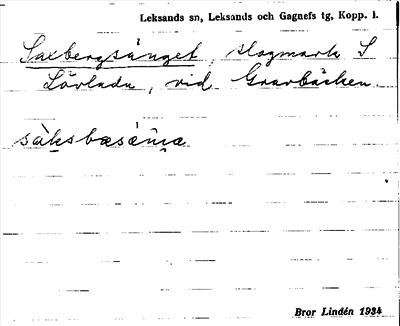 Leksands sn, Leksands och Gagnefs tg, Kopp. l.
Saxbergsänget, skogmark S
Lövlada, vid Gravbäcken.
sàksbæsæ̀ŋa
Bror Lindén 1934